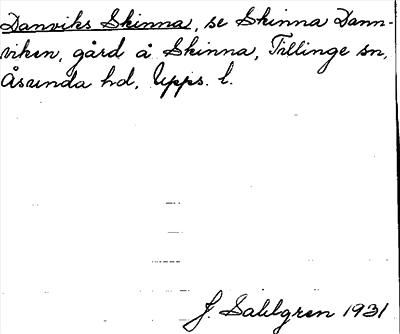 Danviks Skinna, se Skinna Dann-
viken, gård å Skinna, Tillinge sn,
Åsunda hd, Upps. l.
J. Sahlgren 1931